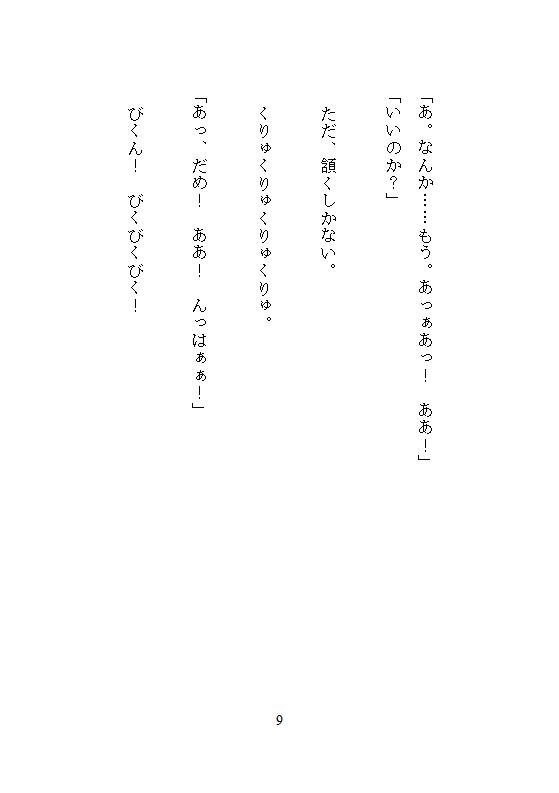 「あ。なんか……もう。あっぁあっ！　ああ！」
「いいのか？」
ただ、頷くしかない。
くりゅくりゅくりゅくりゅ。
「あっ、だめ！　ああ！　んっはぁぁ！」
びくん！　びくびくびく！
9